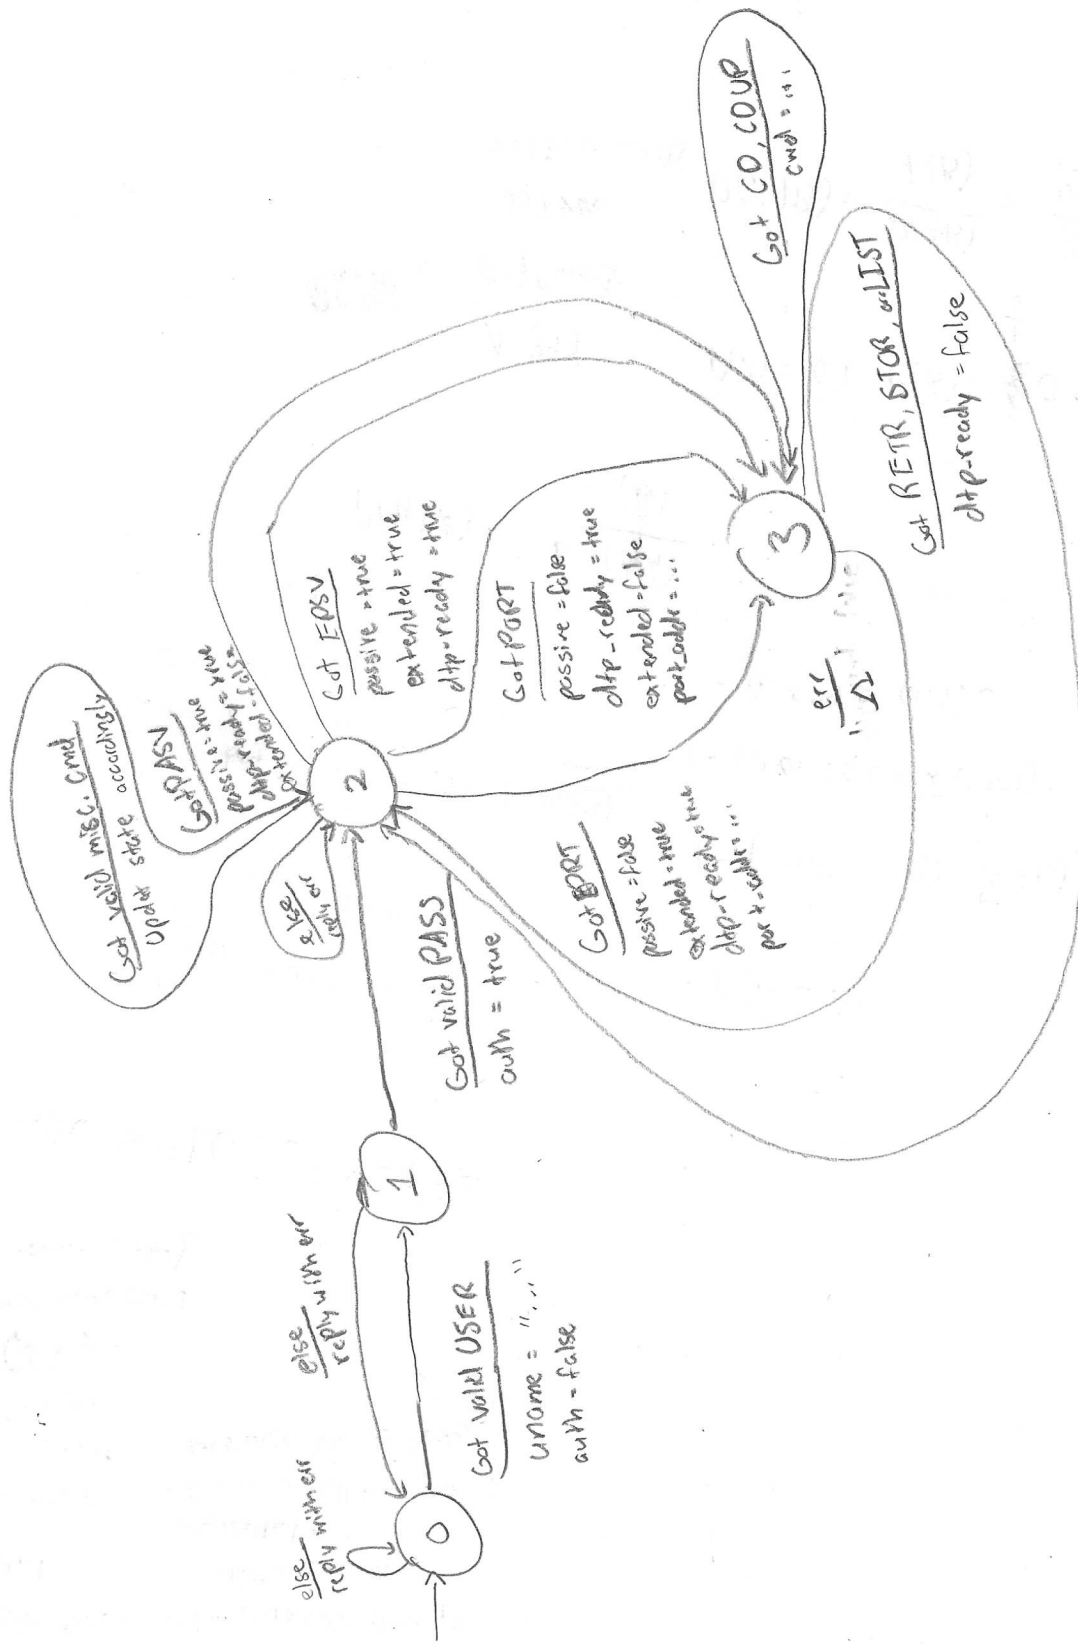 else
reply with err
0
Got valid USER
uname = "..."
auth = false
else
reply with err
1
Got valid PASS
auth = true
Got valid misc. cmd
Update state accordingly
else
reply err
2
Got PASV
passive = true
dtp-ready = true
extended = false
Got EPSV
passive = true
extended = true
dtp-ready = true
Got PORT
passive = false
dtp_ready = true
extended = false
port_addr = ...
Got EPRT
passive = false
extended = true
dtp-ready = true
port-addr = ...
3
err
Got CD, CDUP
cwd = ...
Got RETR, STOR, or LIST
dtp-ready = false